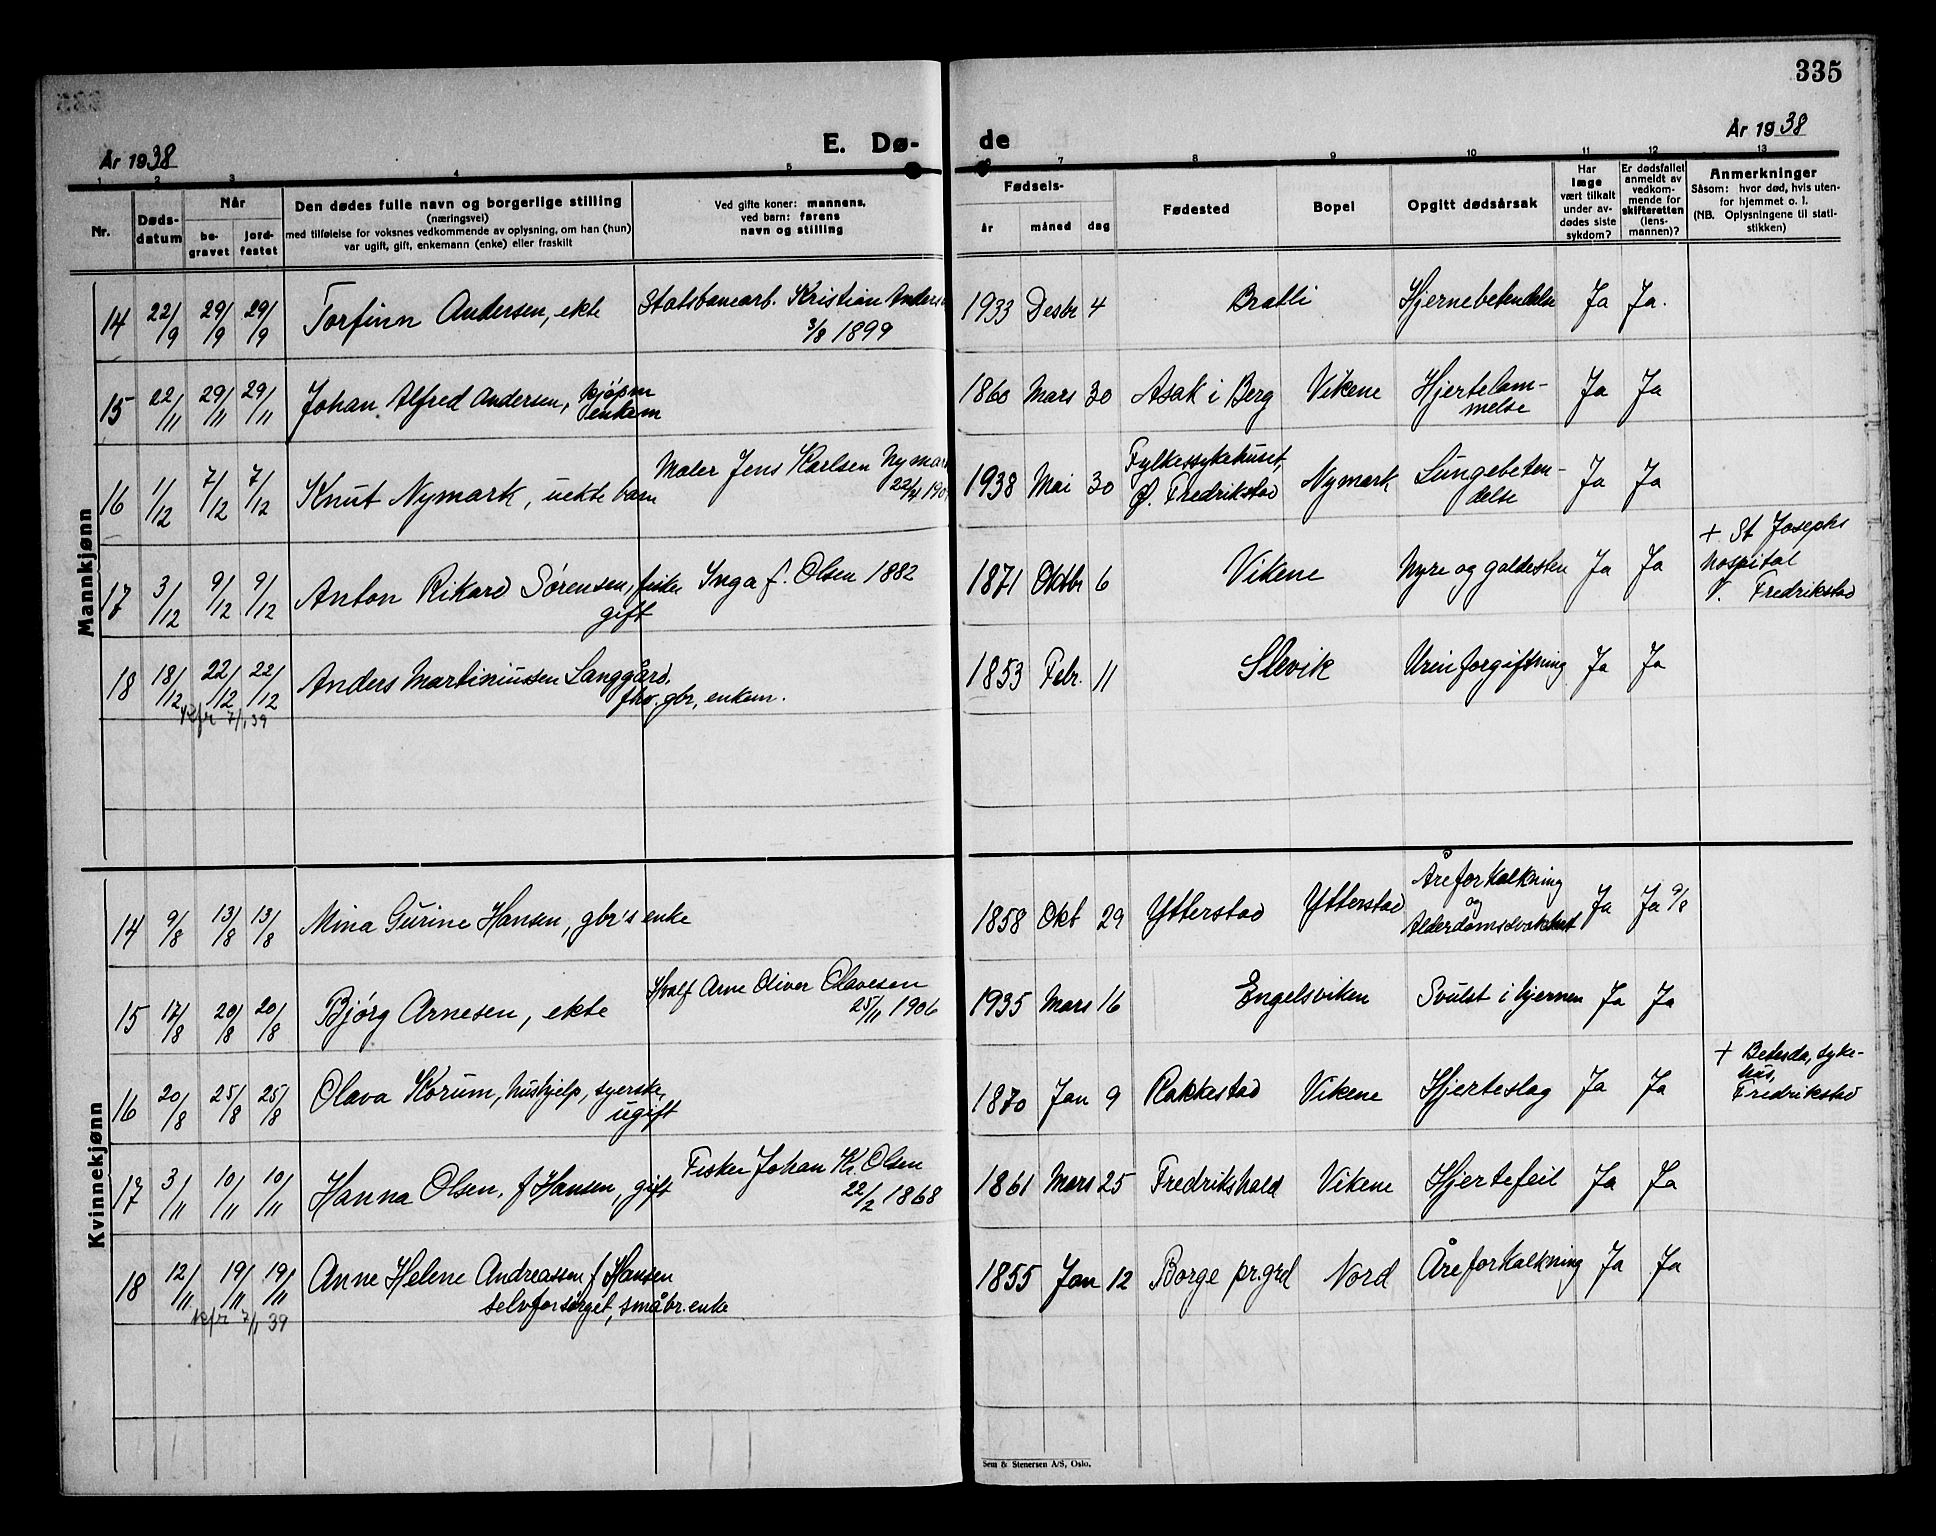 335
År 1938
E. Dø-
de
År 1938
1 2 3 4 5
6 7 8 9 10 11 12 13
Nr.
Døds-
datum
Når
be-
gravet
jord-
festet
Den dødes fulle navn og borgerlige stilling
(næringsvei)
med tilføielse for voksnes vedkommende av oplysning, om han (hun)
var ugift, gift, enkemann (enke) eller fraskilt
Ved gifte koner: mannens,
ved barn: farens
navn og stilling
Fødsels-
år måned dag
Fødested
Bopel
Opgitt dødsårsak
Har
læge
vært tilkalt
under av-
dødes siste
sykdom?
Er dødsfallet
anmeldt av
vedkom-
mende for
skifteretten
(lens-
mannen)?
Anmerkninger
Såsom: hvor død, hvis uten-
for hjemmet o. l.
(NB. Oplysningene til stati-
stikken)
Mannkjønn
14 22/9 29/9 29/9 Torfinn Andersen, ekte Statsbanearb. Kristian Anders
3/8 1899
1933 Desbr 4 Bratli Hjernebetendelse Ja Ja.
15 22/11 29/11 29/11 Johan Alfred Andersen, kjøpm
enkem
1860 Mars 30 Asak i Berg Vikene Hjertelam-
melse Ja Ja
16 1/12 7/12 7/12 Knut Nymark, uekte barn Maler Jens Karlsen Nymark
22/4 190
1938 Mai 30 Fylkessykehuset,
Ø. Fredrikstad Nymark Lungebeten-
delse Ja Ja
17 3/12 9/12 9/12 Anton Rikard Sørensen, fisker
gift
Inga f. Olsen 1882
1871 Oktbr 6 Vikene Nyre og galdesten Ja Ja + St Josephs
hospital
V. Fredrikstad
18 18/12 22/12 22/12 Anders Martiniussen Langgård,
fhv. gbr, enkem.
kfr 7/1 39
1853 Febr. 11 Slevik Urinforgiftning Ja Ja
Kvinnekjønn
14 9/8 13/8 13/8 Mina Gurine Hansen, gbr's enke
1858 Okt 29 Ytterstad Ytterstad Åreforkalkning
og
Alderdomssvakhet Ja Ja 9/8
15 17/8 20/8 20/8 Bjørg Arnesen, ekte Hvalf Arne Oliver Olavesen
25/11 1906
1935 Mars 16 Engelsviken Svulst i hjernen Ja Ja
16 20/8 25/8 25/8 Olava Korum, hushjelp, syerske,
ugift
1870 Jan 9 Rakkestad Vikene Hjerteslag Ja Ja + Betesda, syke-
hus,
Fredrikstad
17 3/11 10/11 10/11 Hanna Olsen, f Hansen, gift Fisker Johan Kr. Olsen
22/2 1868
1861 Mars 25 Fredrikshald Vikene Hjertefeil Ja Ja
18 12/11 19/11 19/11 Anne Helene Andreassen f Hansen
selvforsørget, småbr. enke
kfr 7/1 39
1855 Jan 12 Borge pr.grd Nord Åreforkalkning Ja Ja
Sem & Stenersen A/S, Oslo.